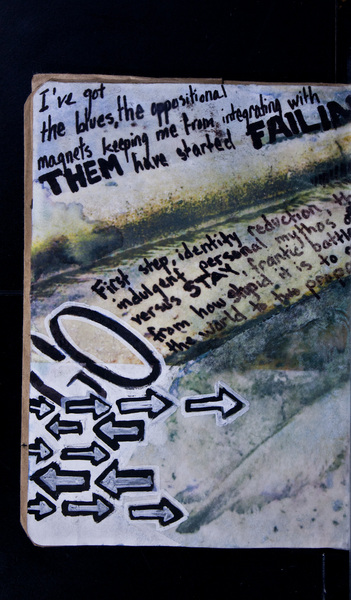 I've got
the blues, the oppositional
magnets keeping me from integrating with
THEM have started FAILIN
First step, identity reduction, th
indulgent personal mythos o
versus STAY, frantic battl
from how stupid it is to
the world to the
GO